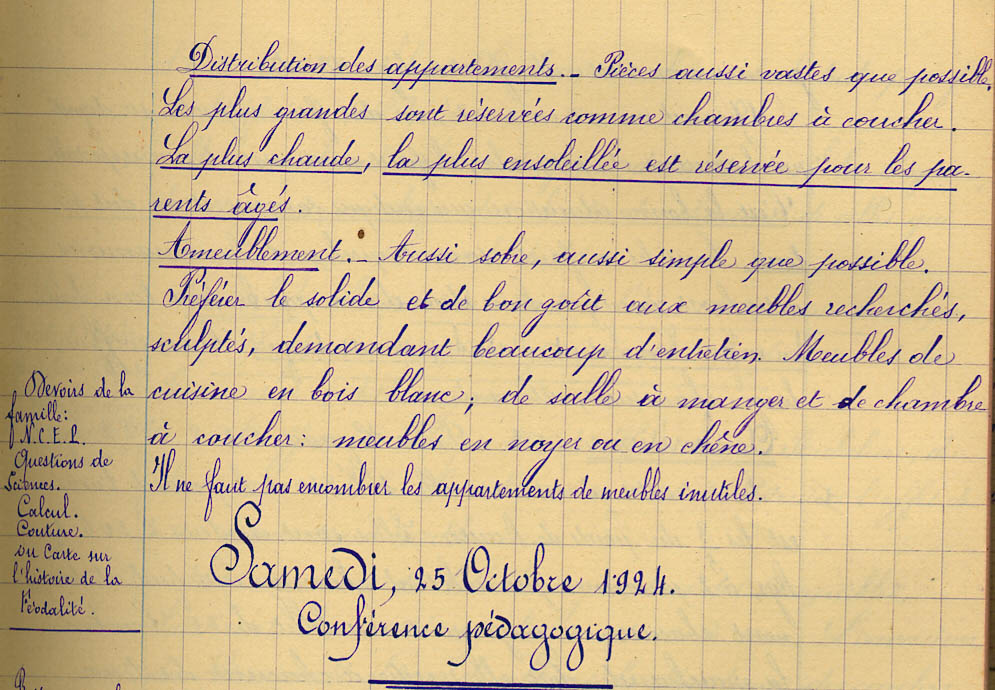 Distribution des appartements._ Pièces aussi vastes que possible.
Les plus grandes sont réservées comme chambres à coucher.
La plus chaude, la plus ensoleillée est réservée pour les pa-
rents âgés.
Ameublement._ Aussi sobre, aussi simple que possible.
Préférer le solide et de bon goût aux meubles recherchés,
sculptés, demandant beaucoup d'entretien. Meubles de
cuisine en bois blanc; de salle à manger et de chambre
à coucher: meubles en noyer ou en chêne.
Il ne faut pas encombrer les appartements de meubles inutiles.
Devoirs de la
famille:
N.C.E.L.
Questions de
Sciences.
Calcul.
Couture.
ou Carte sur
l'histoire de la
Féodalité.
Samedi, 25 Octobre 1924.
Conférence pédagogique.